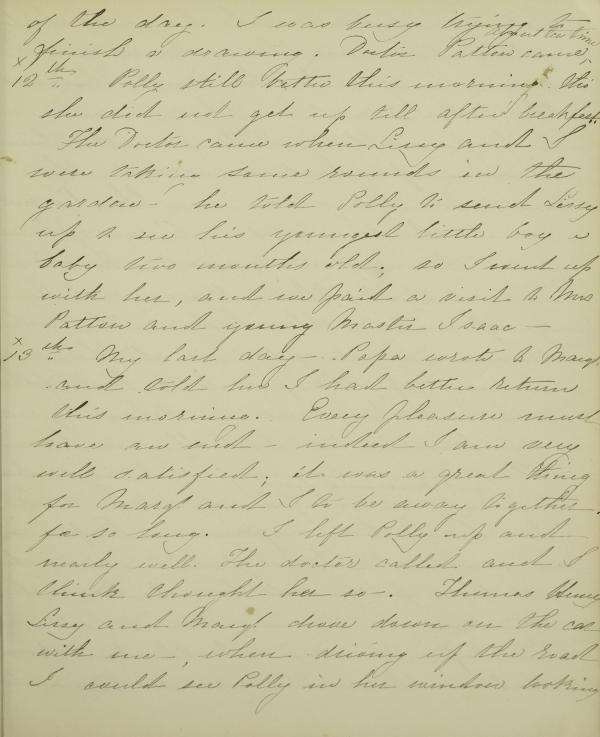 of the day. I was busy trying to
finish a drawing. Doctor Patton came, about tea time
x 12th Polly still better this morning. tho
she did not get up till after breakfast.
The Doctor came when Lissy and I
were taking some rounds in the
garden - he told Polly to send Lissy
up to see his youngest little boy a
baby two months old; so I went up
with her, and we paid a visit to Mrs
Patton and young Master Isaac -
x 13th My last day - Papa wrote to Margt
and told her I had better return
this morning. Every pleasure must
have an end - indeed I am very
well satisfied; it was a great thing
for Margt and I to be away together
for so long. I left Polly up and
nearly well. The doctor called and I
think thought her so -. Thomas Henry
Lissy and Margt drove down on the car
with me -, when driving up the road
I could see Polly in her window looking